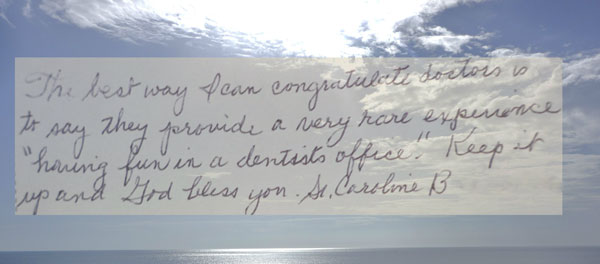 The best way I can congratulate doctors is
to say they provide a very rare experience
"having fun in a dentists office." Keep it
up and God bless you. Sr. Caroline B